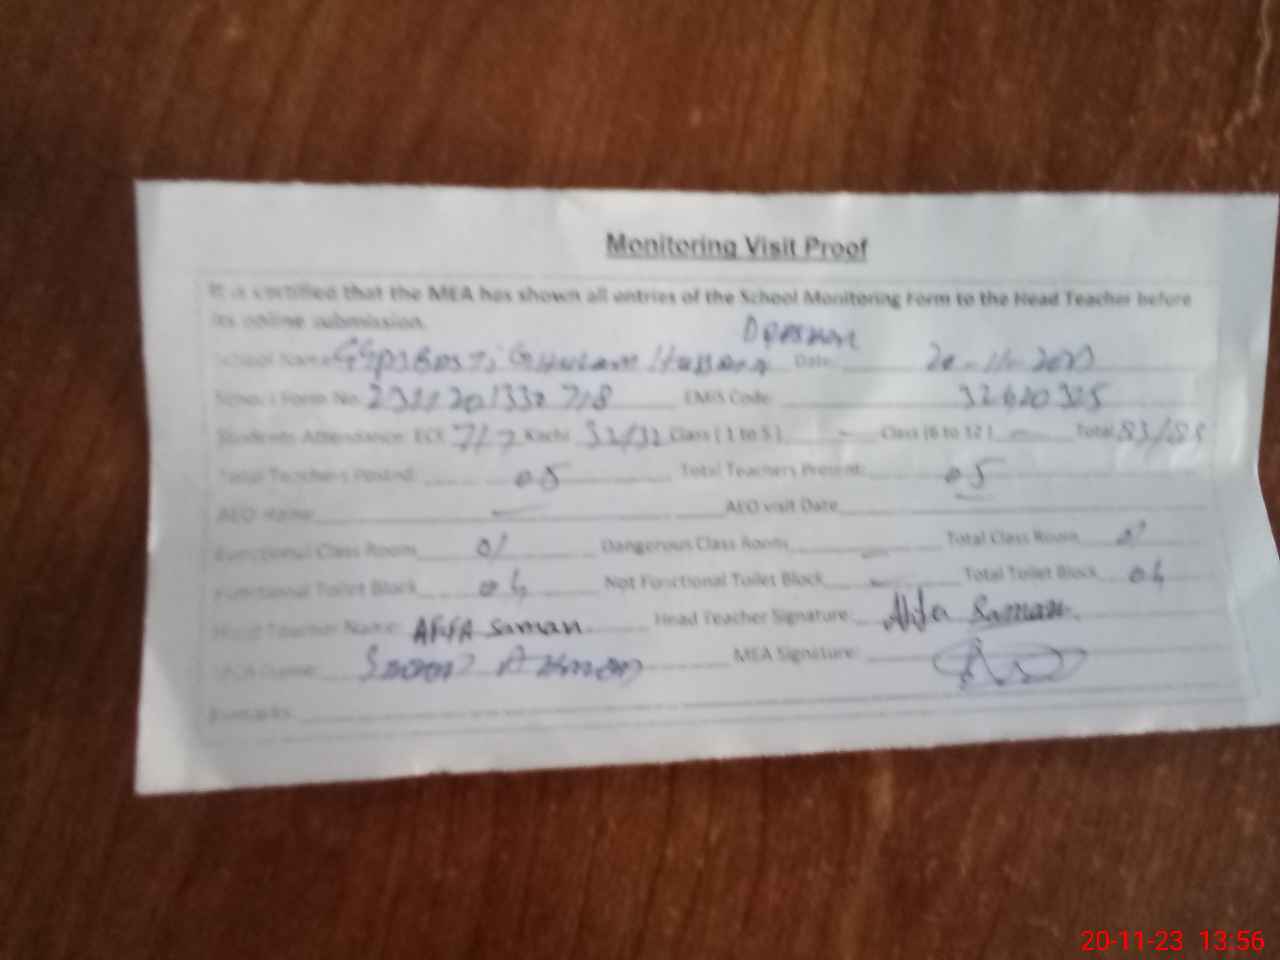 Monitoring Visit Proof
It is certified that the MEA has shown all entries of the School Monitoring Form to the Head Teacher before
its online submission.
School Name Ghulam Date: 20-11-2023
School Form No. EMIS Code: 32620325
Students Attendance: ECE 7/7 Kachi 32/32 Class (1 to 5) - Class (6 to 12) - Total
Total Teachers Posted: 05 Total Teachers Present: 05
AEO Name - AEO visit Date
Functional Class Room 01 Dangerous Class Room - Total Class Room 01
Functional Toilet Block 04 Not Functional Toilet Block - Total Toilet Block 04
Head Teacher Name: AFIFA Saman Head Teacher Signature: Afifa Saman
MEA Name: MEA Signature:
Remarks:
20-11-23 13:56